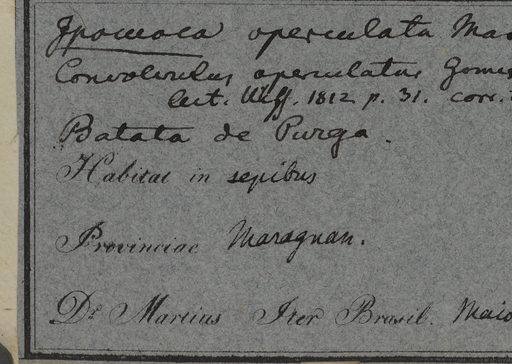 Ipomoea operculata Mar
Convolvulus operculatus Gomes
1812 p. 31. corr.
Batata de Purga.
Habitat in sepibus
Provinciae Maragnan.
Dr. Martius Iter Brasil. Maio